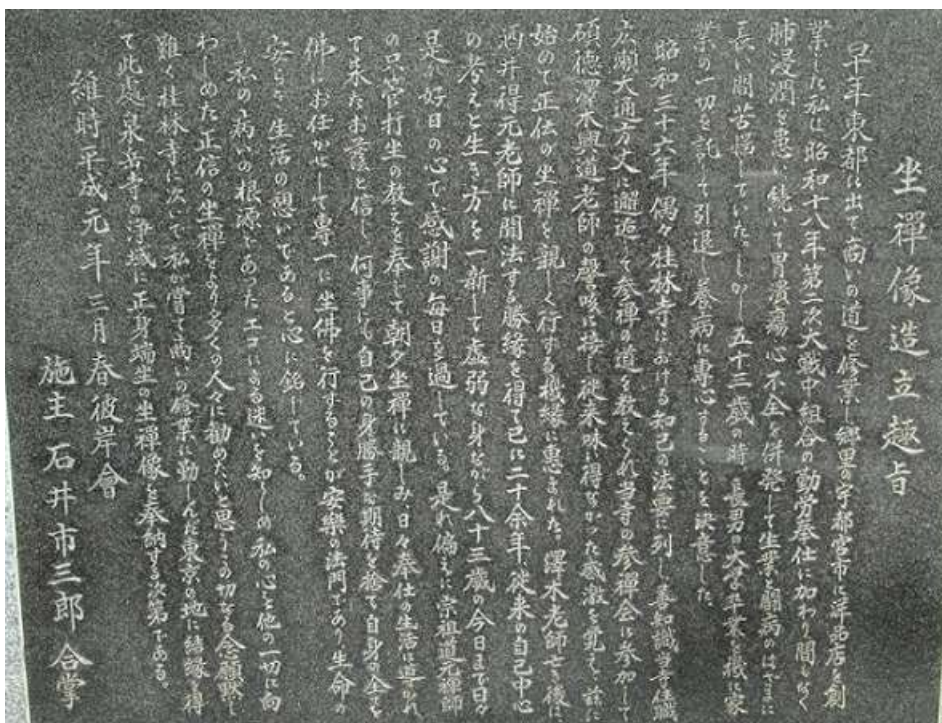 坐禪像造立趣旨
早年東都に出て商いの道を修業し郷里の宇都宮市に洋品店を創
業した私は昭和十八年第二次大戦中組合の勤労奉仕に加わり間もなく
肺浸潤を患い続いて胃潰瘍心不全を併発して生業と闘病のはざまに
長い間苦悩していた。しかし五十三歳の時長男の大学卒業を機に家
業の一切を託して引退し養病に専心することを決意した。
昭和三十六年偶々桂林寺における知己の法要に列し善知識当寺住職
広瀬大通方丈に邂逅して参禅の道を教えられ当寺の参禅会に参加して
碩徳澤木興道老師の謦咳に接し従来味得なかった感激を覚えて茲に
始めて正伝の坐禪を親しく行する機縁に恵まれた。澤木老師亡き後は
酒井得元老師に聞法する勝縁を得て已に二十余年、従来の自己中心
の考えと生き方を一新して虚弱な身だから八十三歳の今日まで日々
是れ好日の心で感謝の毎日を過している。是れ偏えに宗祖道元禅師
の只管打坐の教えを奉して朝夕坐禅に親しみ、日々奉仕の生活に導かれ
て来たお蔭と信し、何事にも自己の身勝手な期待を捨て自身の全てを
佛にお任かせして専一に坐佛を行することが安樂の法門であり生命の
安らぎ、生活の憩いであると心に銘している。
私の病いの根源であったエゴによる迷いを知らしめ私の心を他の一切に向
わしめた正信の坐禅をより多くの人々に勧めたいと思うこの切なる念願黙し
難く桂林寺に次いで私が嘗て商いの修業に勤しんだ東京の地に結縁を得
て此處泉岳寺の浄域に正身端坐の坐禅像を奉納する次第である。
維時平成元年三月春彼岸會
施主 石井市三郎 合掌